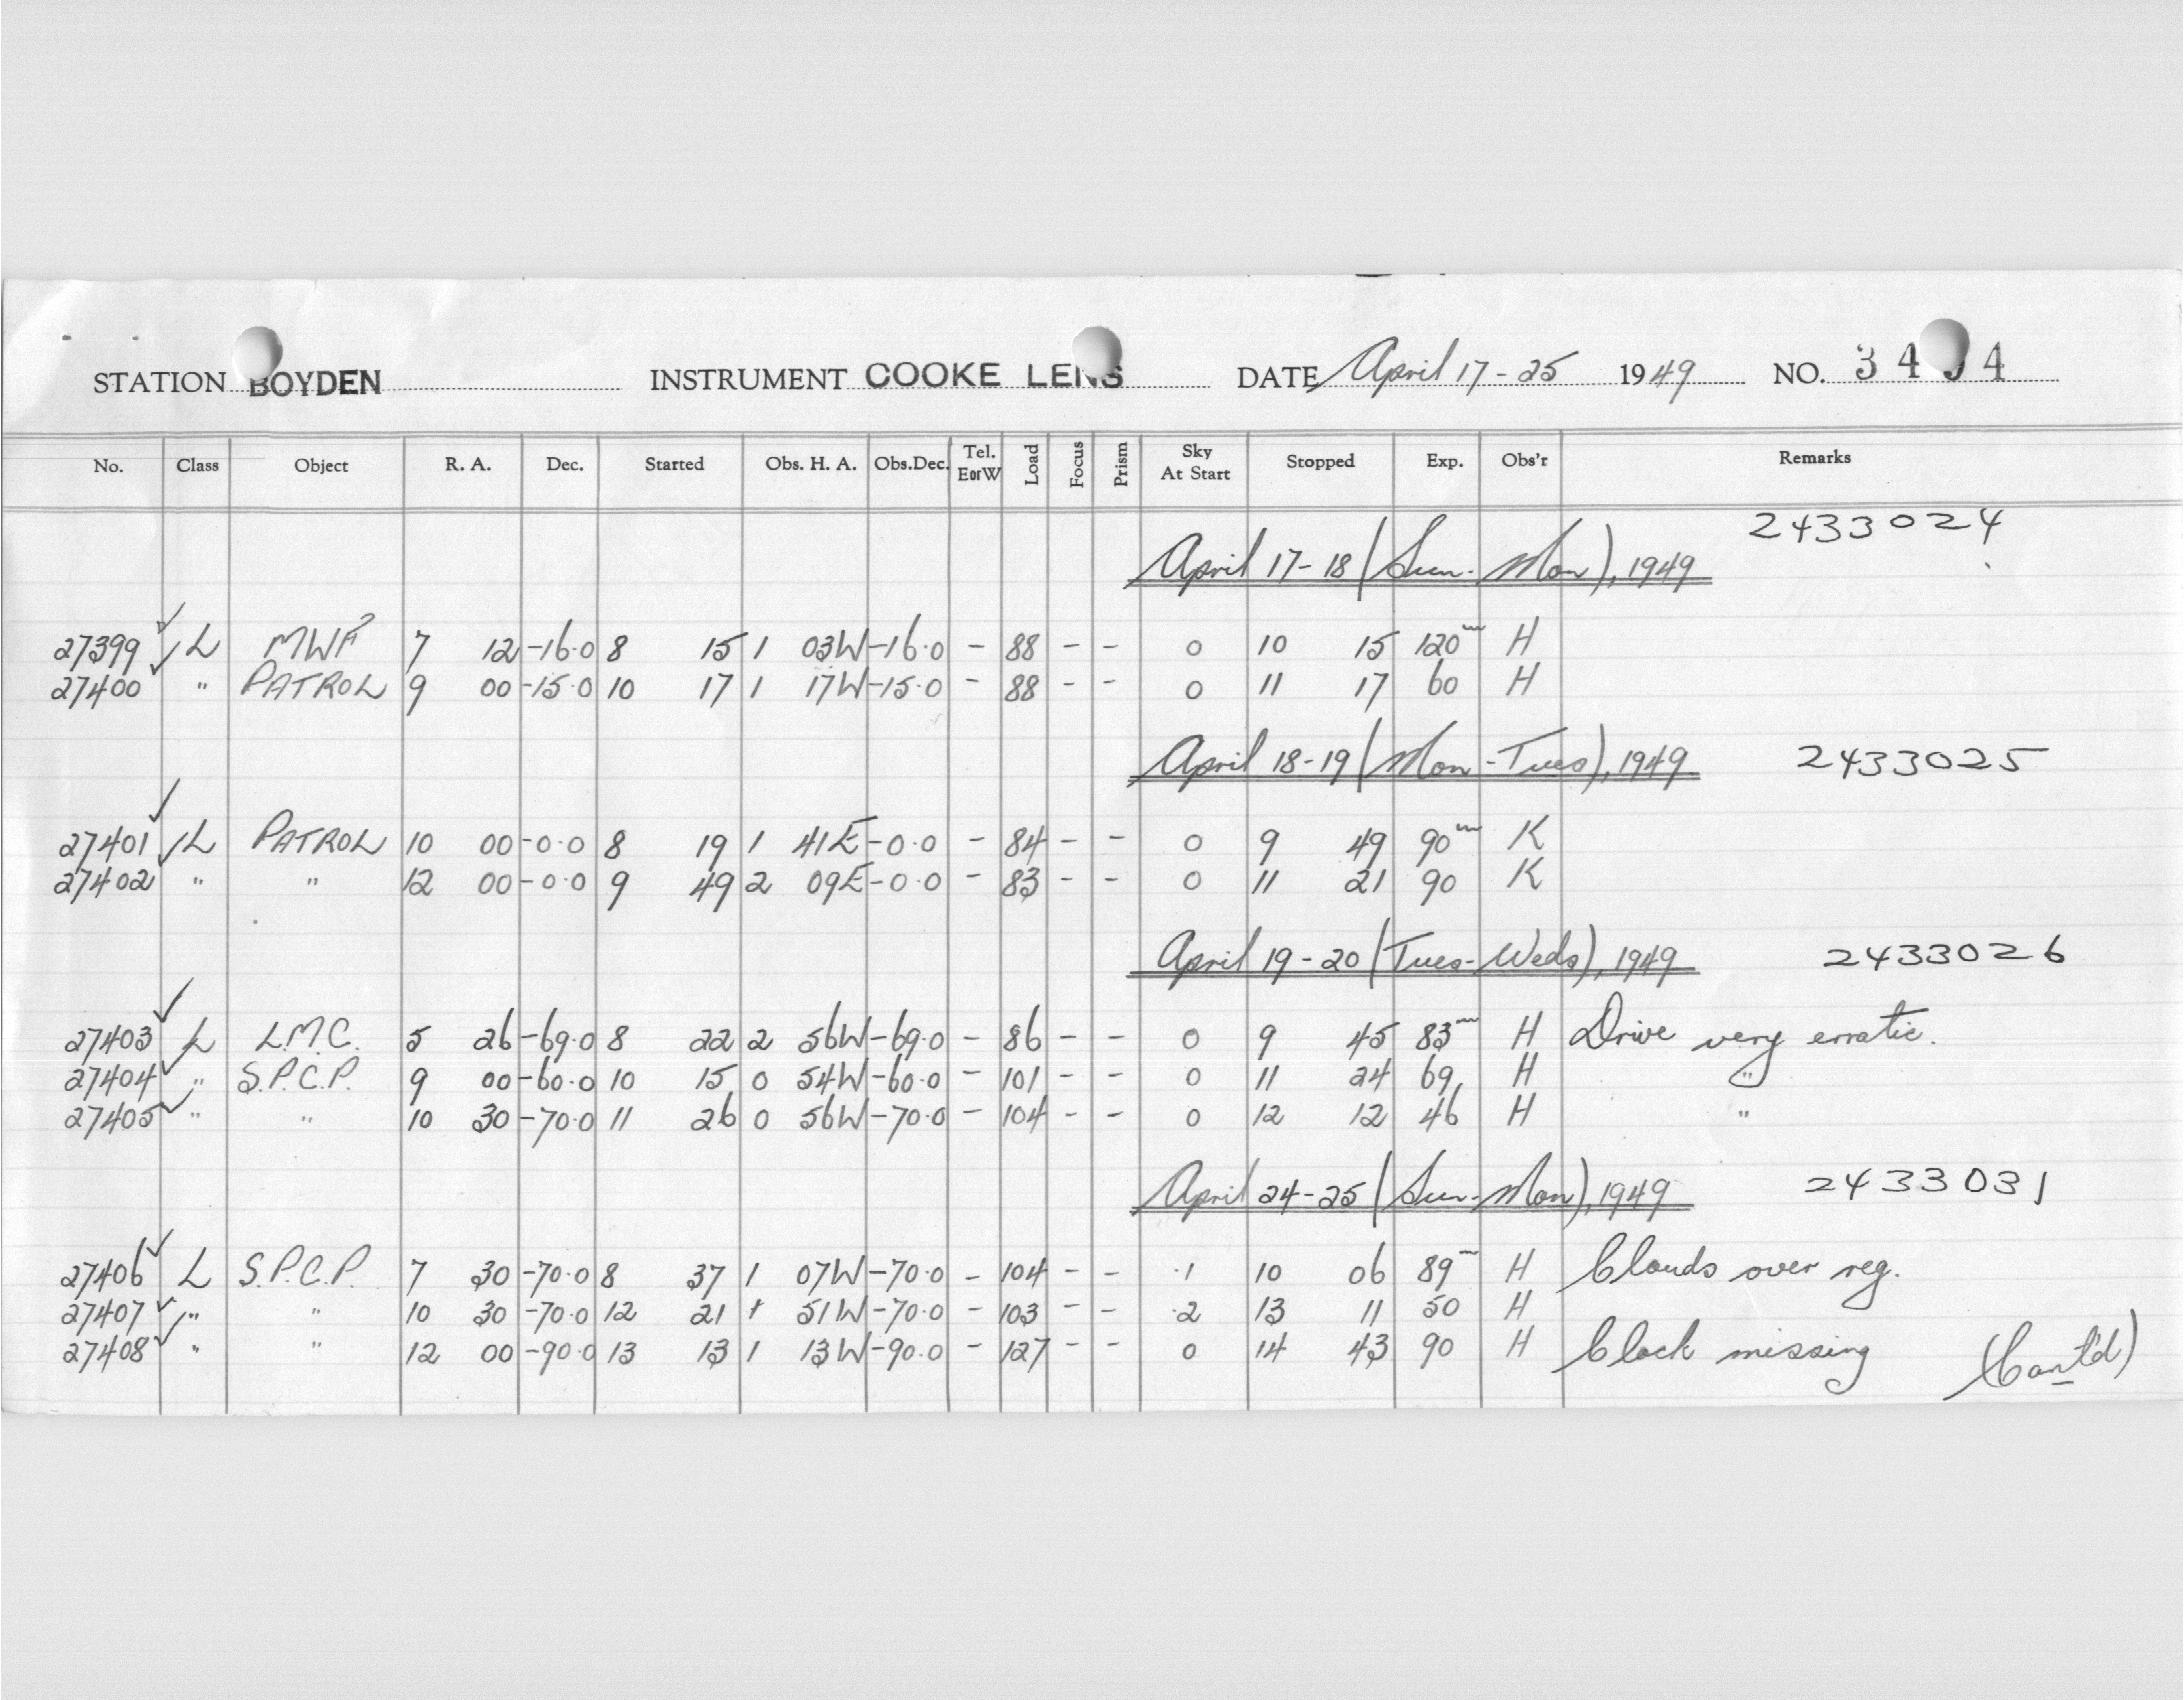 STATION BOYDEN INSTRUMENT COOKE LENS DATE April 17-25 1949 NO. 34 4
No. Class Object R. A. Dec. Started Obs. H. A. Obs.Dec. Tel. EorW Load Focus Prism Sky At Start Stopped Exp. Obs'r Remarks
2433024
April 17-18 (Sun-Mon), 1949
27399 L MWF 7 12 -16.0 8 15 1 03W -16.0 - 88 - - 0 10 15 120m H
27400 " PATROL 9 00 -15.0 10 17 1 17W -15.0 - 88 - - 0 11 17 60 H
April 18-19 (Mon-Tues), 1949 2433025
27401 L PATROL 10 00 -0.0 8 19 1 41E -0.0 - 84 - - 0 9 49 90m K
27402 " " 12 00 -0.0 9 49 2 09E -0.0 - 83 - - 0 11 21 90 K
April 19-20 (Tues-Weds), 1949 2433026
27403 L L.M.C. 5 26 -69.0 8 22 2 56W -69.0 - 86 - - 0 9 45 83m H Drive very erratic.
27404 " S.P.C.P. 9 00 -60.0 10 15 0 54W -60.0 - 101 - - 0 11 24 69 H "
27405 " " 10 30 -70.0 11 26 0 56W -70.0 - 104 - - 0 12 12 46 H "
April 24-25 (Sun-Mon), 1949 2433031
27406 L S.P.C.P. 7 30 -70.0 8 37 1 07W -70.0 - 104 - - .1 10 06 89m H Clouds over reg.
27407 " " 10 30 -70.0 12 21 1 51W -70.0 - 103 - - .2 13 11 50 H
27408 " " 12 00 -90.0 13 13 1 13W -90.0 - 127 - - 0 14 43 90 H Clock missing (Cont'd)